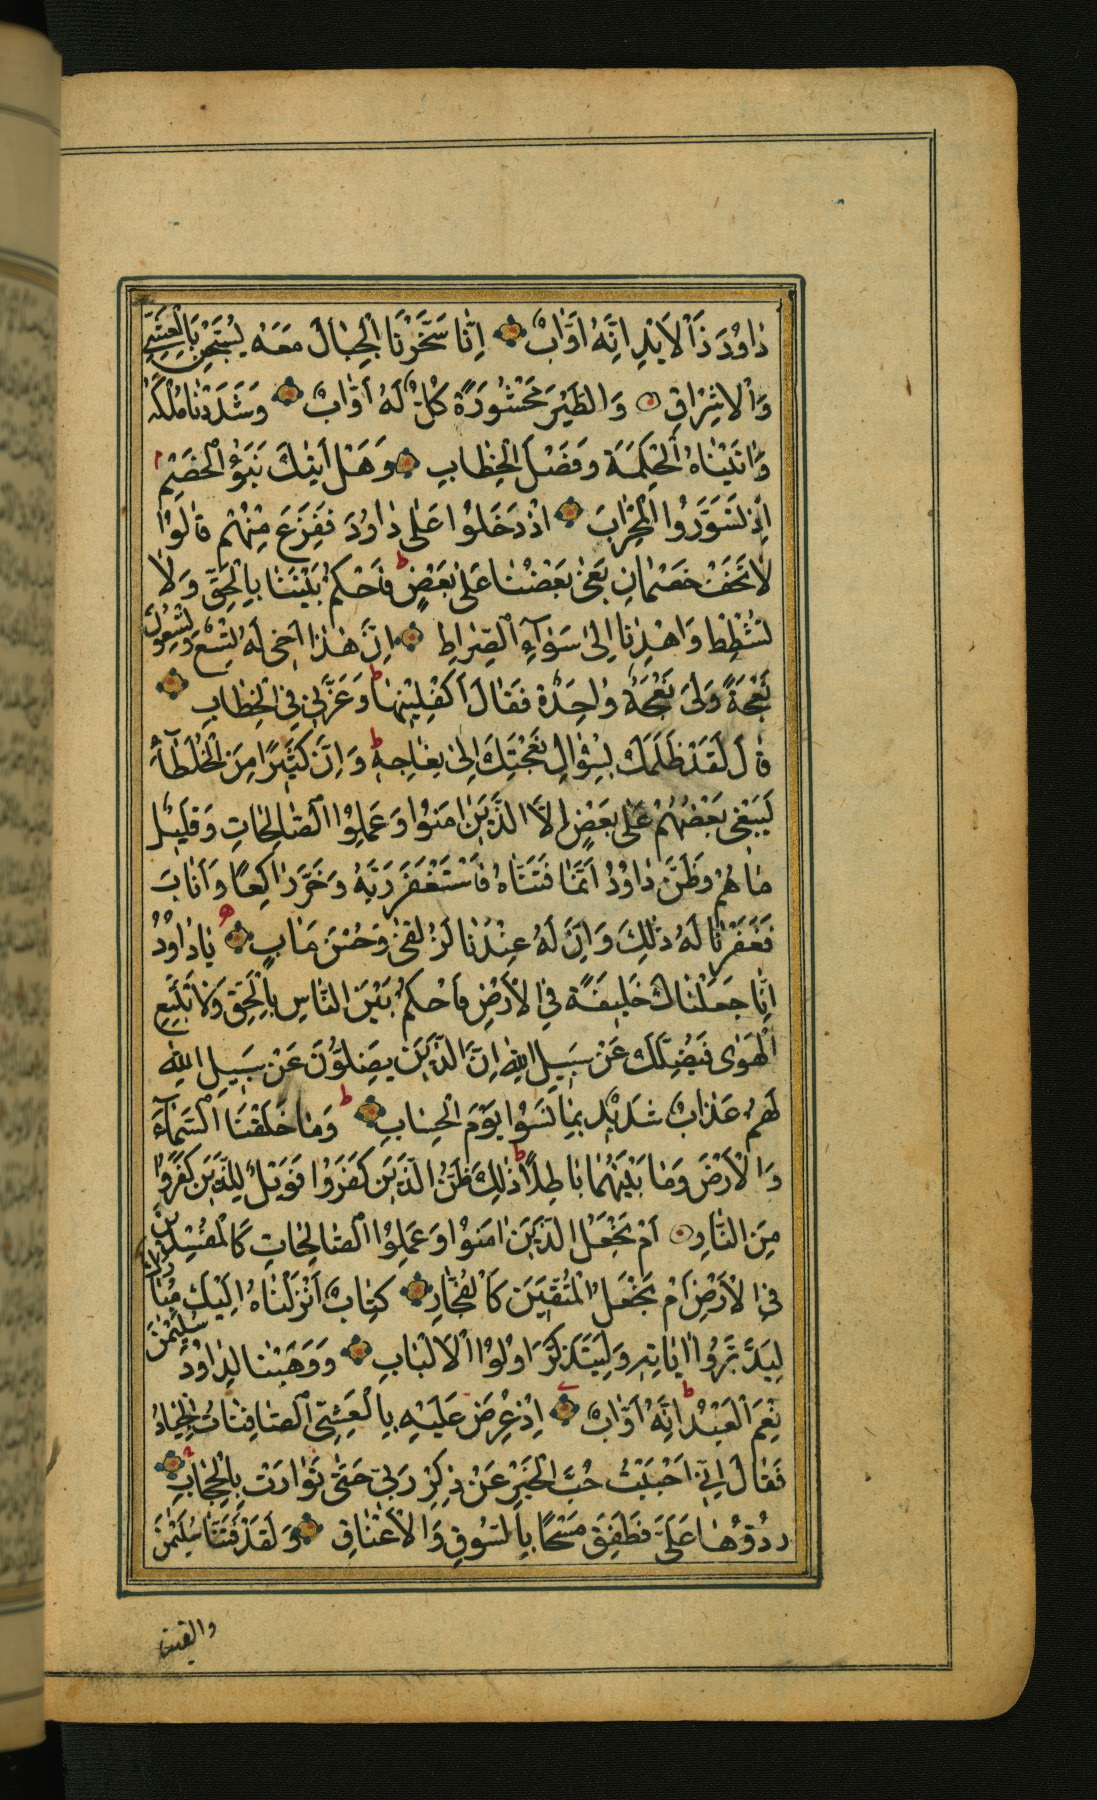 دٰاوُدَ ذَا الْاَيْدِ اِنَّهُ اَوّٰابٌ اِنّٰا سَخَّرْنَا الْجِبٰالَ مَعَهُ يُسَبِّحْنَ بِالْعَشِيِّ
وَالْاِشْرٰاقِ وَالطَّيْرَ مَحْشُورَةً كُلٌّ لَهُ اَوّٰابٌ وَشَدَدْنٰا مُلْكَهُ
وَاٰتَيْنٰاهُ الْحِكْمَةَ وَفَصْلَ الْخِطٰابِ وَهَلْ اَتٰيكَ نَبَؤُا الْخَصْمِ
اِذْ تَسَوَّرُوا الْمِحْرٰابَ اِذْ دَخَلُوا عَلٰى دٰاوُدَ فَفَزِعَ مِنْهُمْ قٰالُوا
لٰا تَخَفْ خَصْمٰانِ بَغٰى بَعْضُنٰا عَلٰى بَعْضٍ فَاحْكُمْ بَيْنَنٰا بِالْحَقِّ وَلٰا
تُشْطِطْ وَاهْدِنٰا اِلٰى سَوٰٓاءِ الصِّرٰاطِ اِنَّ هٰذٰا اَخِي لَهُ تِسْعٌ وَتِسْعُونَ
نَعْجَةً وَلِيَ نَعْجَةٌ وٰاحِدَةٌ فَقٰالَ اَكْفِلْنِيهٰا وَعَزَّنِي فِي الْخِطٰابِ
قٰالَ لَقَدْ ظَلَمَكَ بِسُؤٰالِ نَعْجَتِكَ اِلٰى نِعٰاجِهِ وَاِنَّ كَثِيرًا مِنَ الْخُلَطٰٓاءِ
لَيَبْغِي بَعْضُهُمْ عَلٰى بَعْضٍ اِلَّا الَّذِينَ اٰمَنُوا وَعَمِلُوا الصّٰالِحٰاتِ وَقَلِيلٌ
مٰا هُمْ وَظَنَّ دٰاوُدُ اَنَّمٰا فَتَنّٰاهُ فَاسْتَغْفَرَ رَبَّهُ وَخَرَّ رٰاكِعًا وَاَنٰابَ
فَغَفَرْنٰا لَهُ ذٰلِكَ وَاِنَّ لَهُ عِنْدَنٰا لَزُلْفٰى وَحُسْنَ مَاٰبٍ يٰا دٰاوُدُ
اِنّٰا جَعَلْنٰاكَ خَلِيفَةً فِي الْاَرْضِ فَاحْكُمْ بَيْنَ النّٰاسِ بِالْحَقِّ وَلٰا تَتَّبِعِ
الْهَوٰى فَيُضِلَّكَ عَنْ سَبِيلِ اللّٰهِ اِنَّ الَّذِينَ يَضِلُّونَ عَنْ سَبِيلِ اللّٰهِ
لَهُمْ عَذٰابٌ شَدِيدٌ بِمٰا نَسُوا يَوْمَ الْحِسٰابِ وَمٰا خَلَقْنَا السَّمٰٓاءَ
وَالْاَرْضَ وَمٰا بَيْنَهُمٰا بٰاطِلًا ذٰلِكَ ظَنُّ الَّذِينَ كَفَرُوا فَوَيْلٌ لِلَّذِينَ كَفَرُوا
مِنَ النّٰارِ اَمْ نَجْعَلُ الَّذِينَ اٰمَنُوا وَعَمِلُوا الصّٰالِحٰاتِ كَالْمُفْسِدِينَ
فِي الْاَرْضِ اَمْ نَجْعَلُ الْمُتَّقِينَ كَالْفُجّٰارِ كِتٰابٌ اَنْزَلْنٰاهُ اِلَيْكَ مُبٰارَكٌ
لِيَدَّبَّرُوا اٰيٰاتِهِ وَلِيَتَذَكَّرَ اُولُوا الْاَلْبٰابِ وَوَهَبْنٰا لِدٰاوُدَ سُلَيْمٰنَ
نِعْمَ الْعَبْدُ اِنَّهُ اَوّٰابٌ اِذْ عُرِضَ عَلَيْهِ بِالْعَشِيِّ الصّٰافِنٰاتُ الْجِيٰادُ
فَقٰالَ اِنِّي اَحْبَبْتُ حُبَّ الْخَيْرِ عَنْ ذِكْرِ رَبِّي حَتّٰى تَوٰارَتْ بِالْحِجٰابِ
رُدُّوهٰا عَلَيَّ فَطَفِقَ مَسْحًا بِالسُّوقِ وَالْاَعْنٰاقِ وَلَقَدْ فَتَنّٰا سُلَيْمٰنَ
والقینا